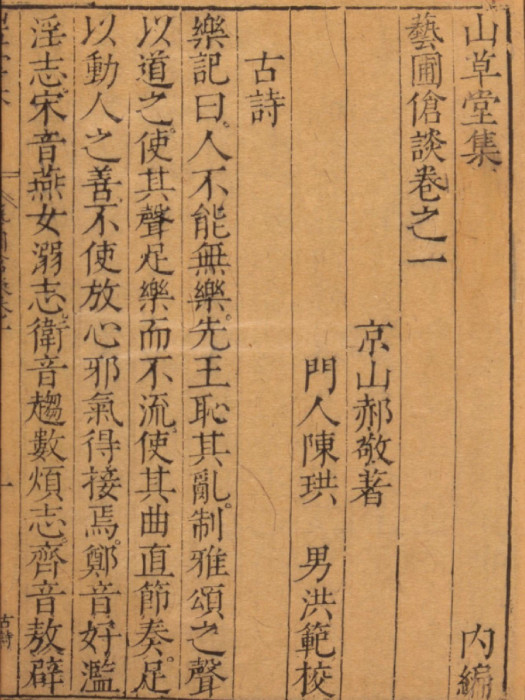 山草堂集 內編
藝圃傖談卷之一
京山郝敬著
門人陳珙 男洪範校
古詩
樂記曰。人不能無樂。先王恥其亂。制雅頌之聲
以道之。使其聲足樂而不流。使其曲直節奏。足
以動人之善。不使放心邪氣得接焉。鄭音好濫
淫志。宋音燕女溺志。衛音趨數煩志。齊音敖辟
一
古詩